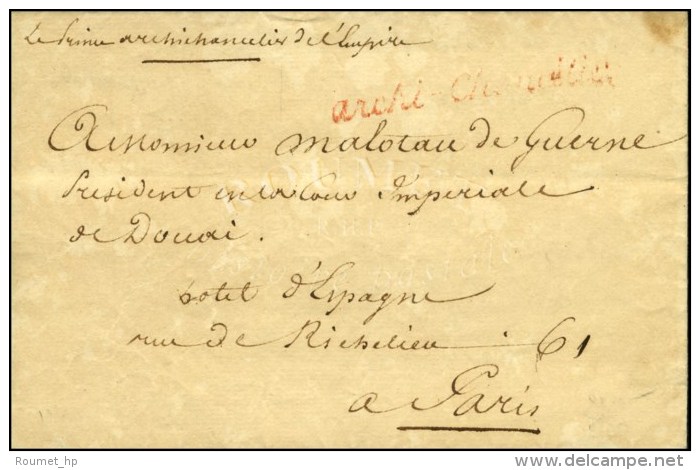 Le Prince archichancelier de l'Empire
archi-chancelier
A Monsieur Malotau de Guerne
President en la Cour Imperiale
de Douai.
hotel d'Espagne
rue de Richelieu 61
a Paris
Roumet_hp
delcampe.net